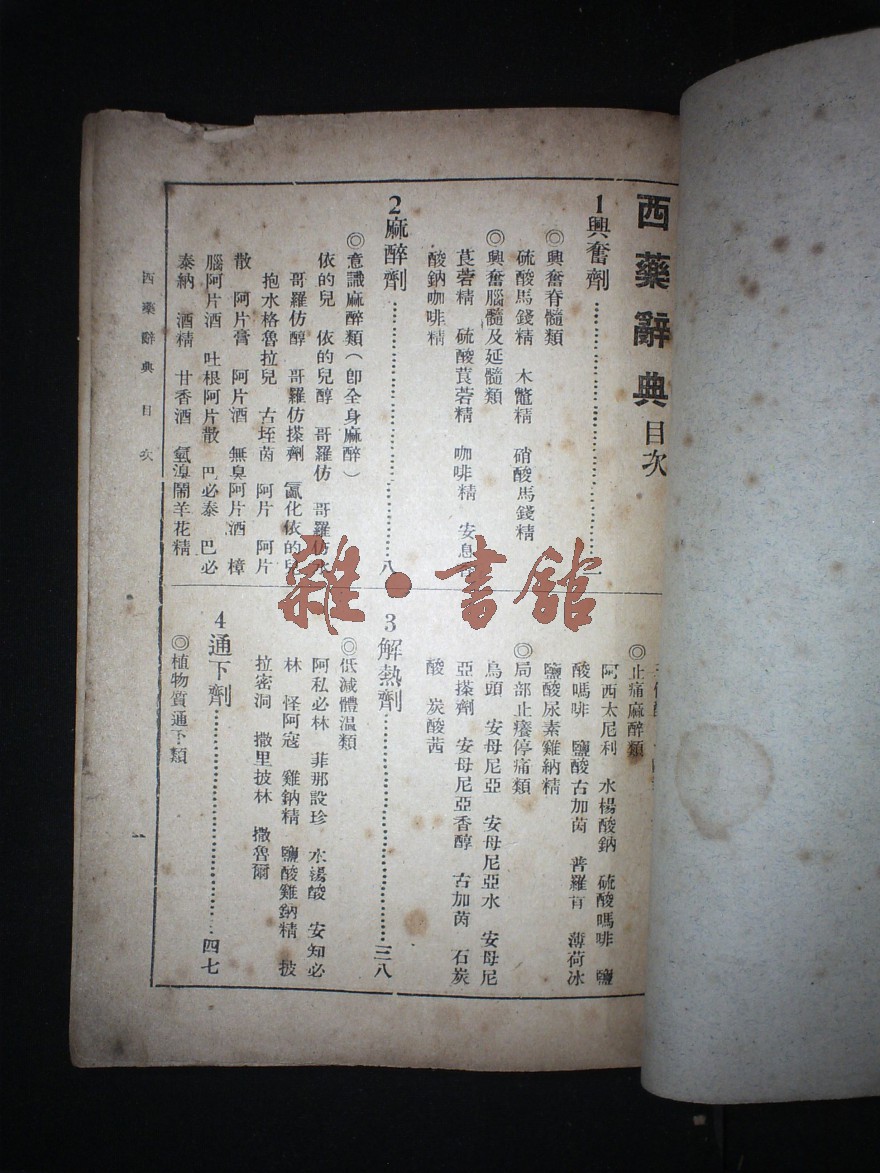 西藥辭典目次
1興奮劑……一
◎興奮脊髓類
硫酸馬錢精 木虌精 硝酸馬錢精
◎興奮腦髓及延髓類
莨菪精 硫酸莨菪精 咖啡精 安息
酸鈉咖啡精
2麻醉劑……八
◎意識麻醉類(卽全身麻醉)
依的兒 依的兒醇 哥羅仿 哥羅仿水
哥羅仿醇 哥羅仿搽劑 氯化依的兒
抱水格魯拉兒 古垤茵 阿片 阿片
散 阿片膏 阿片酒 無臭阿片酒 樟
腦阿片酒 吐根阿片散 巴必泰 巴必
泰納 酒精 甘香酒 氫溴鬧羊花精
◎止痛麻醉類
阿西太尼利 水楊酸鈉 硫酸嗎啡 鹽
酸嗎啡 鹽酸古加茵 普羅 薄荷冰
鹽酸尿素雞納精
◎局部止癢停痛類
烏頭 安母尼亞 安母尼亞水 安母尼
亞搽劑 安母尼亞香醇 古加茵 石炭
酸 炭酸茜
3解熱劑……三八
◎低減體溫類
阿私必林 菲那設珍 水楊酸 安知必
林 怪阿寇 雞鈉精 鹽酸雞鈉精 披
拉密洞 撒里披林 撒魯爾
4通下劑……四七
◎植物質通下類
西藥辭典 目次
一
雜·書館